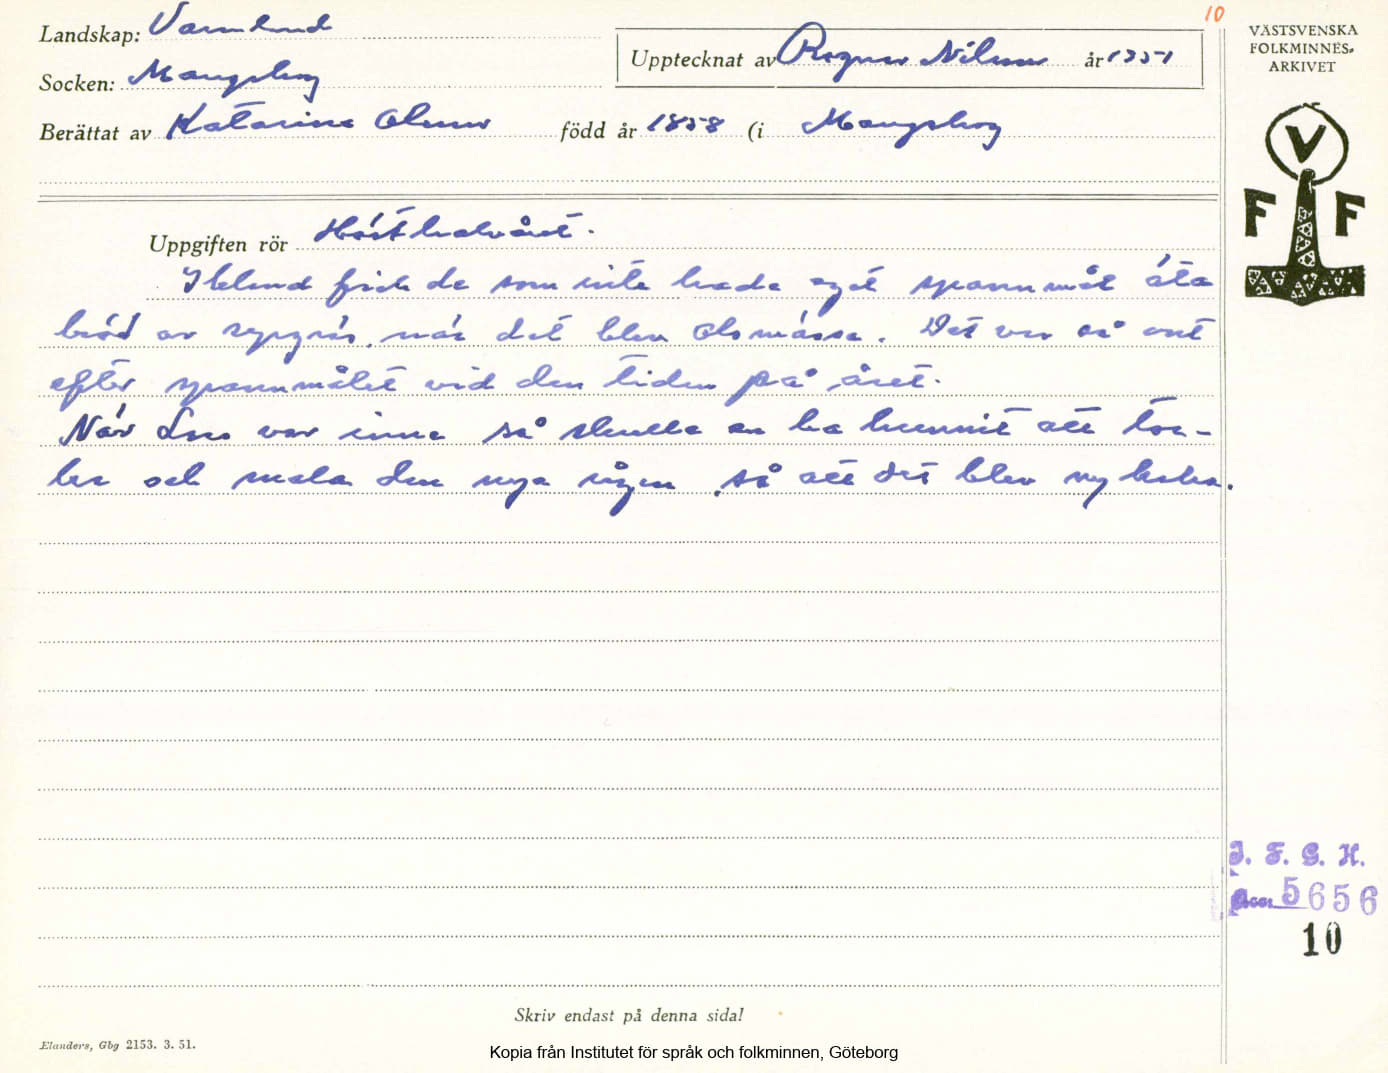 10
Landskap: Värmland
VÄSTSVENSKA
FOLKMINNES-
ARKIVET
Upptecknat av Ragnar Nilsson år 1951
Socken: Mangskog
Berättat av Katarina Olsson född år 1858 (i Mangskog
V
F F
Uppgiften rör Hösthalvåret.
Ibland fick de som inte hade eget spannmål äta
bröd av rypgräs, när det blev Olsmässa. Det var så ont
efter spannmålet vid den tiden på året.
När Lars var inne så skulle en ha hunnit att tor-
ka och mala den nya rågen, så att det blev nykaka.
I. F. G. H.
Acc. 5656
10
Skriv endast på denna sida!
Elanders, Gbg 2153. 3. 51.
Kopia från Institutet för språk och folkminnen, Göteborg